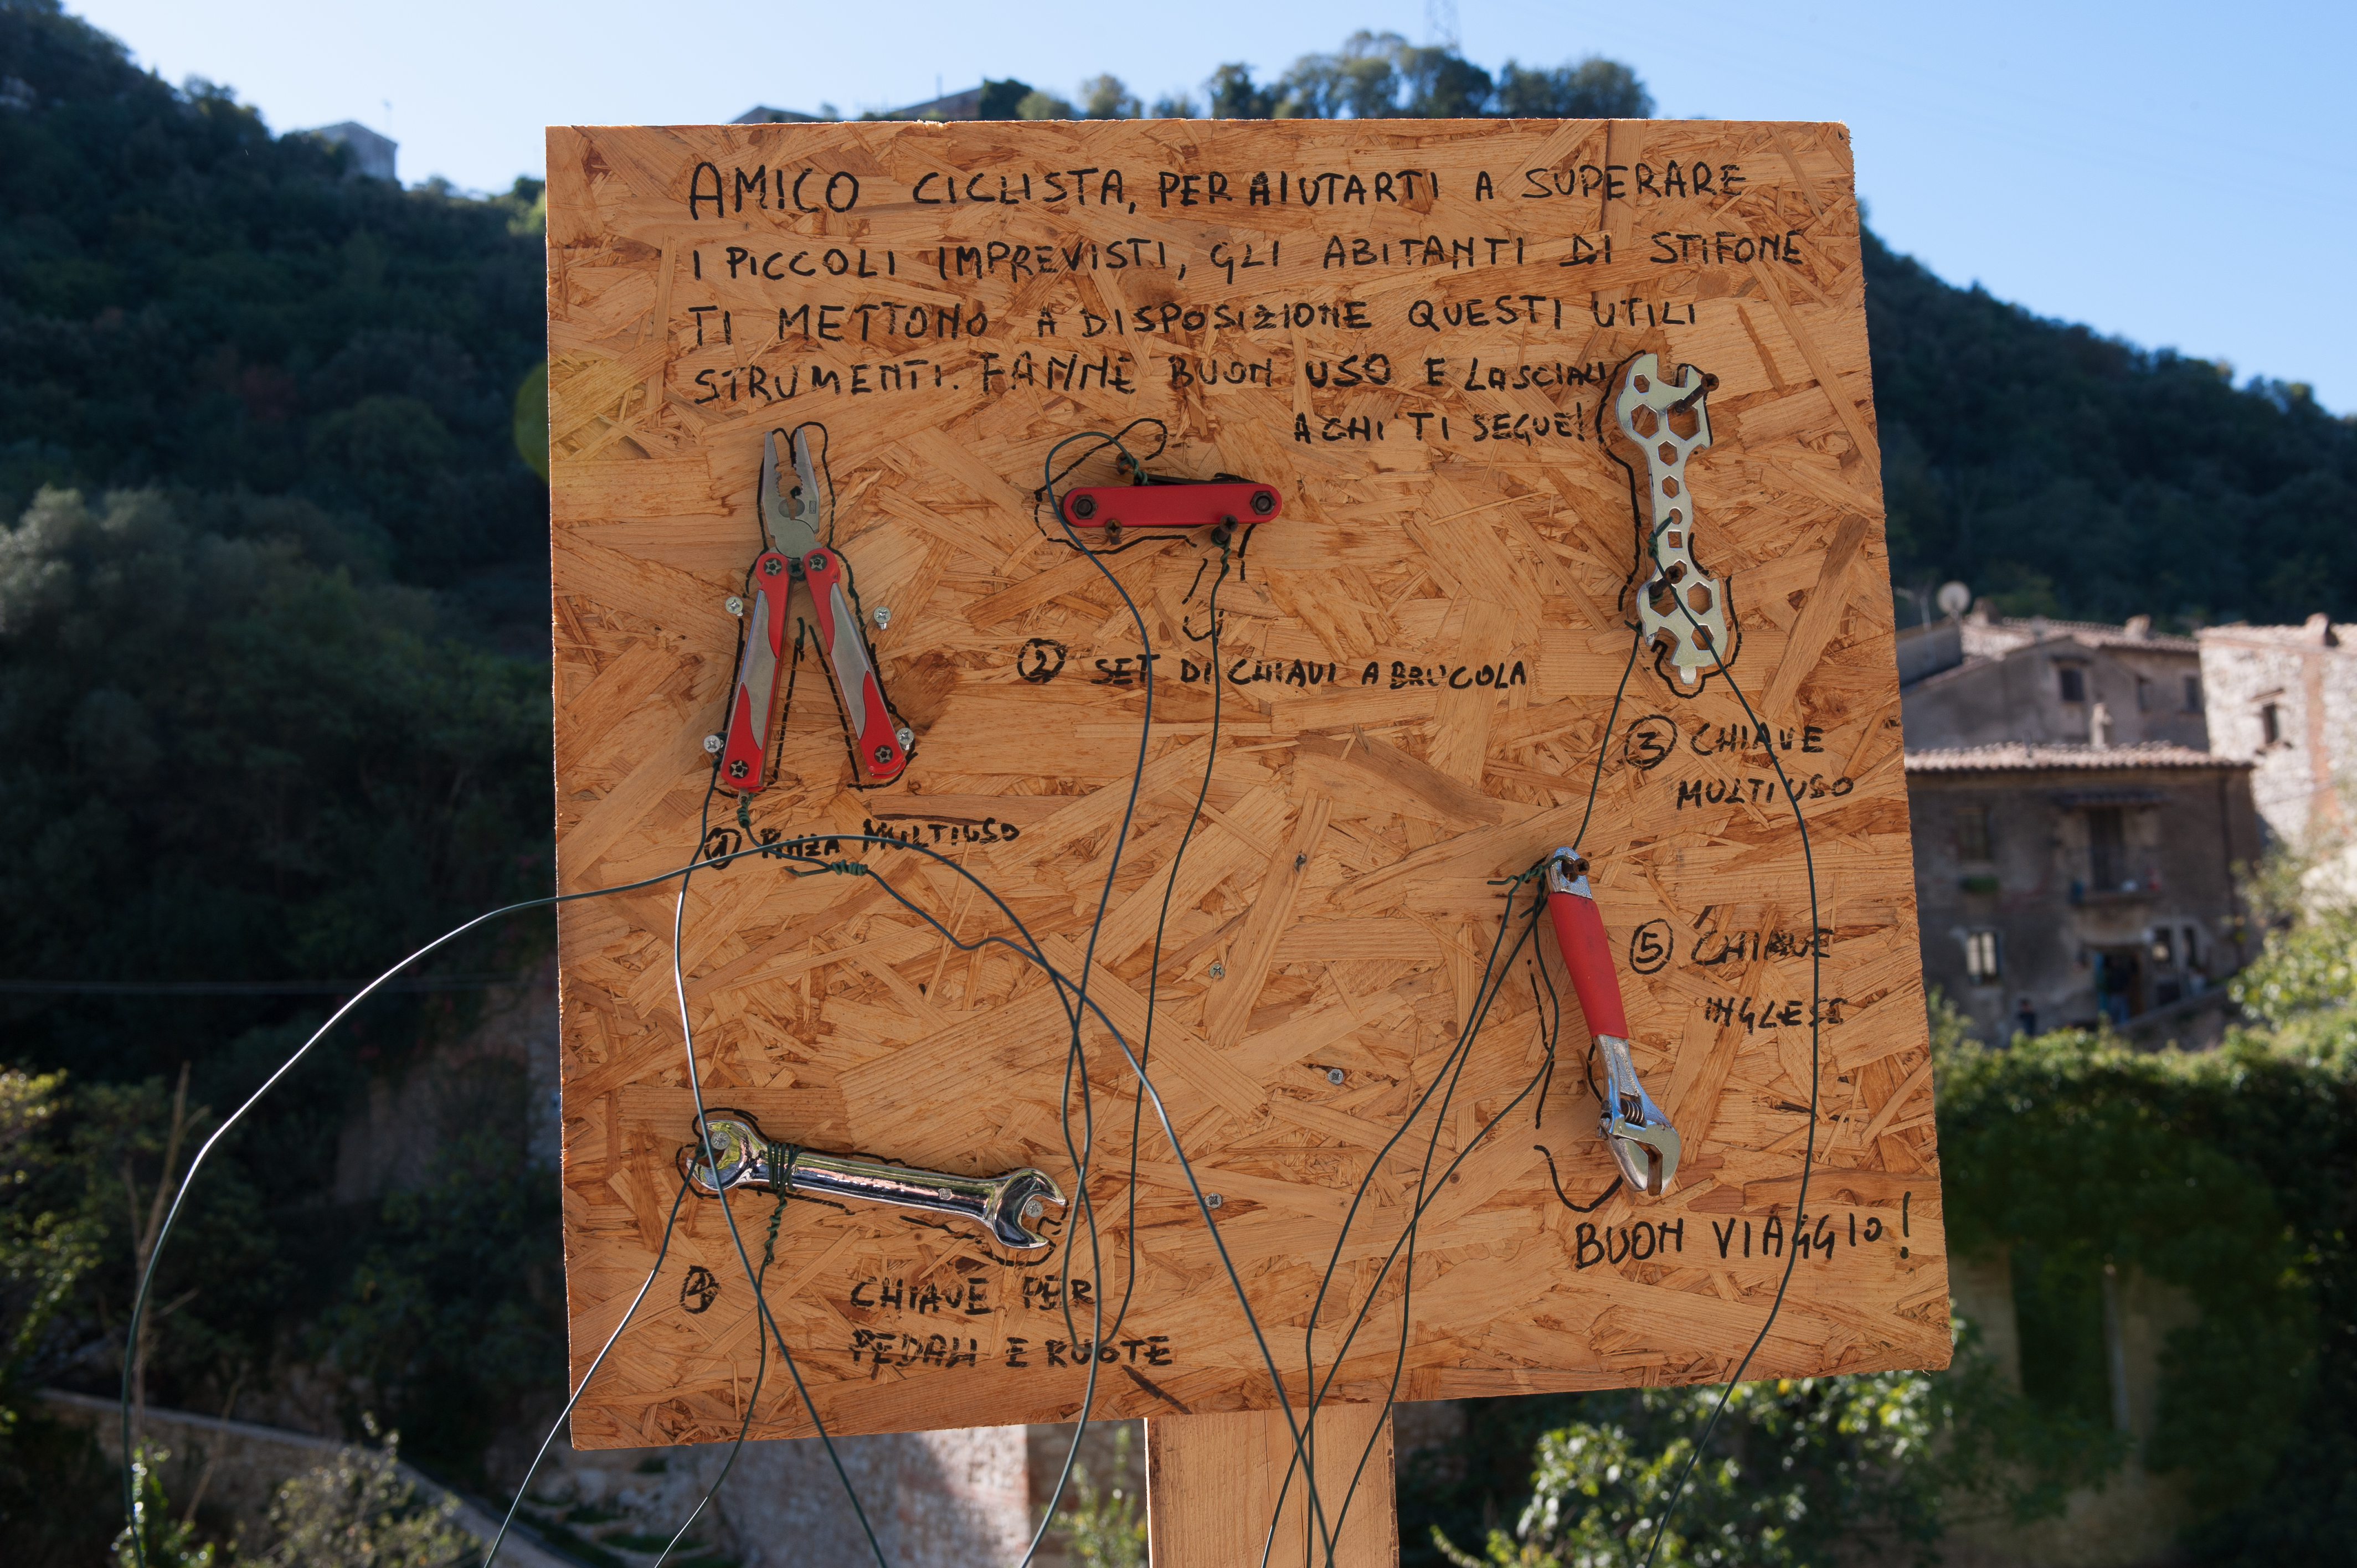 AMICO CICLISTA, PER AIUTARTI A SUPERARE
I PICCOLI IMPREVISTI, GLI ABITANTI DI STIFONE
TI METTONO A DISPOSIZIONE QUESTI UTILI
STRUMENTI. FANNE BUON USO E LASCIALI
A CHI TI SEGUE!
② SET DI CHIAVI A BRUGOLA
③ CHIAVE
MULTIUSO
① PINZA MULTIUSO
⑤ CHIAVE
INGLESE
④ CHIAVE PER
PEDALI E RUOTE
BUON VIAGGIO!